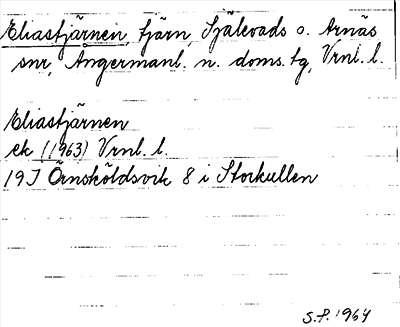 Eliastjärnen, tjärn, Själevads o. Arnäs
snr, Ångermanl. n. doms.tg, Vrnl. l.
Eliastjärnen
ek (1963) Vrnl. l.
19J Örnsköldsvik 8 i Storkullen
S.P. 1964